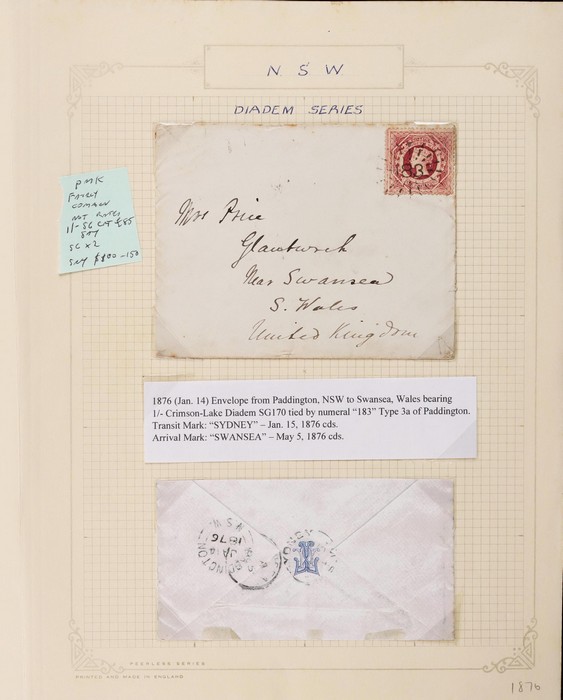 N. S. W.
DIADEM SERIES
PMK
FAIRLY
COMMON
NOT RATED
1/- SG CAT £85
SAY
SG x 2
SAY $100 - 150
Mrs Price
Near Swansea
S. Wales
United Kingdom
1876 (Jan. 14) Envelope from Paddington, NSW to Swansea, Wales bearing
1/- Crimson-Lake Diadem SG170 tied by numeral “183” Type 3a of Paddington.
Transit Mark: “SYDNEY” – Jan. 15, 1876 cds.
Arrival Mark: “SWANSEA” – May 5, 1876 cds.
N.S.W
JA 14
1876
SYDNEY
PEERLESS SERIES
PRINTED AND MADE IN ENGLAND
1876